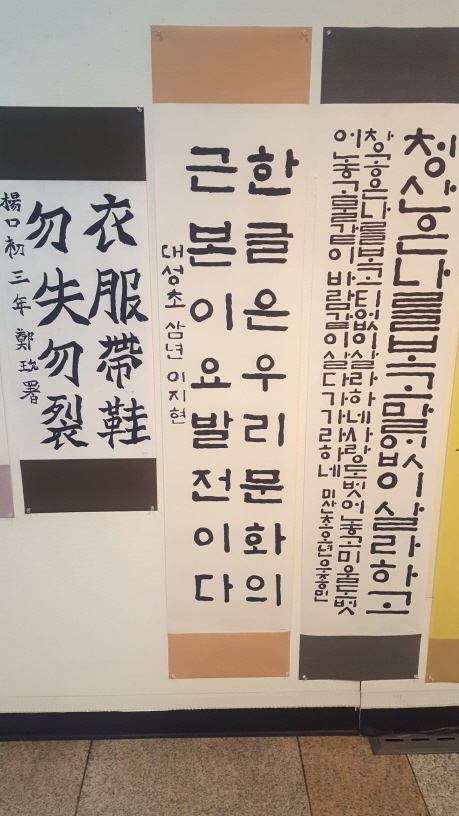 청산은나를보고말없이살라하고
창공은나를보고티없이살라하네사랑도벗어놓고미움도벗
어놓고물같이바람같이살다가가라하네 미산초오년
한글은우리문화의
근본이요발전이다
대성초 삼년 이지현
衣服帶鞋
勿失勿裂
楊口初三年鄭